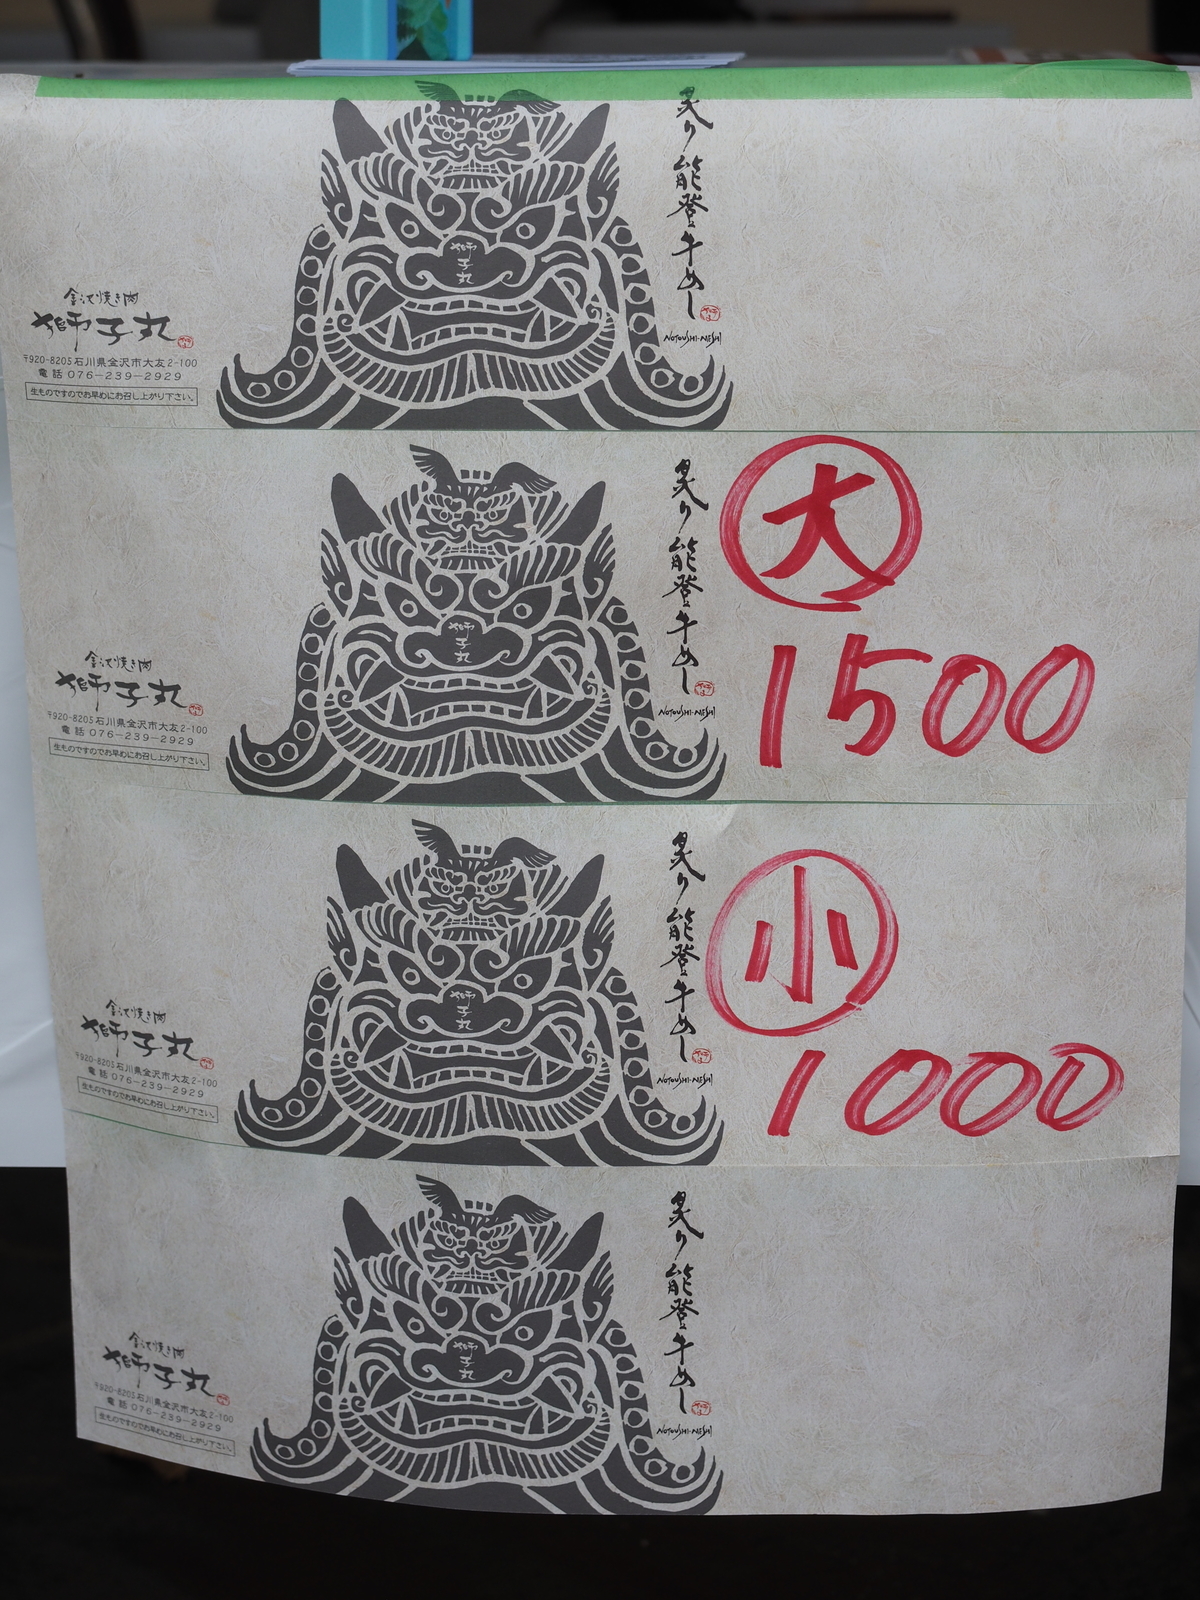 炙り能登牛めし
NOTOUSHI-MESHI
獅子丸
金沢焼き肉
獅子丸
〒920-8205石川県金沢市大友2-100
電話 076-239-2929
生ものですのでお早めにお召し上がり下さい。
炙り能登牛めし
NOTOUSHI-MESHI
獅子丸
金沢焼き肉
獅子丸
〒920-8205石川県金沢市大友2-100
電話 076-239-2929
生ものですのでお早めにお召し上がり下さい。
大
1500
炙り能登牛めし
NOTOUSHI-MESHI
獅子丸
金沢焼き肉
獅子丸
〒920-8205石川県金沢市大友2-100
電話 076-239-2929
生ものですのでお早めにお召し上がり下さい。
小
1000
炙り能登牛めし
NOTOUSHI-MESHI
獅子丸
金沢焼き肉
獅子丸
〒920-8205石川県金沢市大友2-100
電話 076-239-2929
生ものですのでお早めにお召し上がり下さい。